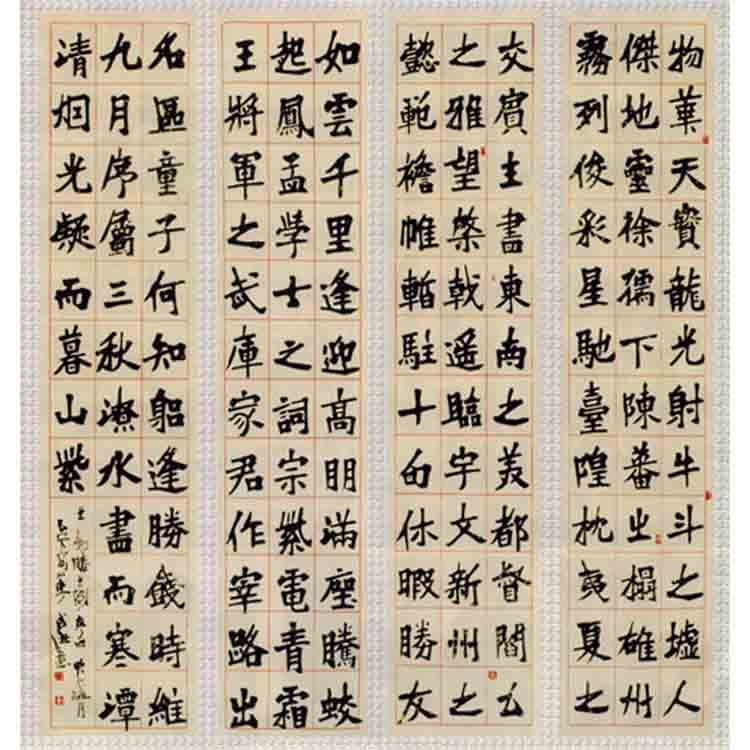 物華天寶龍光射牛斗之墟人
傑地靈徐孺下陳蕃之榻雄州
霧列俊彩星馳臺隍枕夷夏之
交賓主盡東南之美都督閻公
之雅望棨戟遙臨宇文新州之
懿範襜帷暫駐十旬休暇勝友
如雲千里逢迎高朋滿座騰蛟
起鳳孟學士之詞宗紫電青霜
王將軍之武庫家君作宰路出
名區童子何知躬逢勝餞時維
九月序屬三秋潦水盡而寒潭
清烟光凝而暮山紫